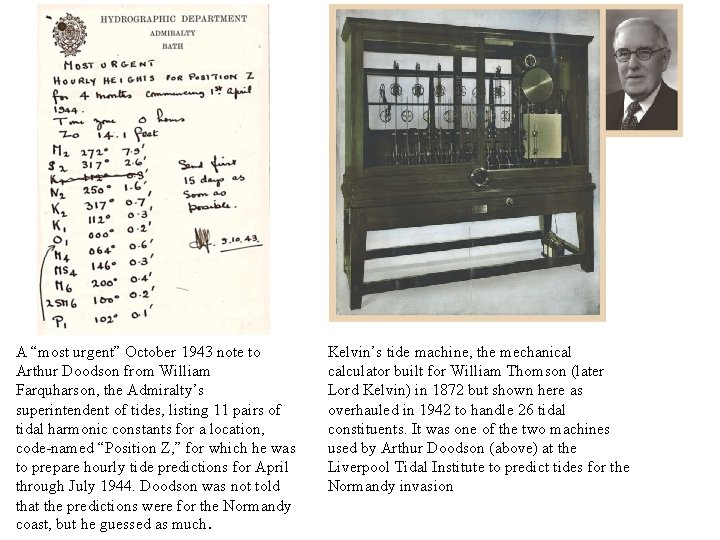 HYDROGRAPHIC DEPARTMENT
ADMIRALTY
BATH
MOST URGENT
HOURLY HEIGHTS FOR POSITION Z
for 4 months commencing 1st April
1944.
Time zone 0 hours
Zo 14.1 feet
M2 272° 7.9'
S2 317° 2.6'
K1 112° 0.3'
N2 250° 1.6'
K2 317° 0.7'
K1 112° 0.3'
O1 000° 0.2'
M4 064° 0.6'
MS4 146° 0.3'
M6 200° 0.4'
2SM6 100° 0.2'
P1 102° 0.1'
Send first
15 days as
soon as
possible.
9.10.43.
A “most urgent” October 1943 note to
Arthur Doodson from William
Farquharson, the Admiralty’s
superintendent of tides, listing 11 pairs of
tidal harmonic constants for a location,
code-named “Position Z,” for which he was
to prepare hourly tide predictions for April
through July 1944. Doodson was not told
that the predictions were for the Normandy
coast, but he guessed as much.
Kelvin’s tide machine, the mechanical
calculator built for William Thomson (later
Lord Kelvin) in 1872 but shown here as
overhauled in 1942 to handle 26 tidal
constituents. It was one of the two machines
used by Arthur Doodson (above) at the
Liverpool Tidal Institute to predict tides for the
Normandy invasion